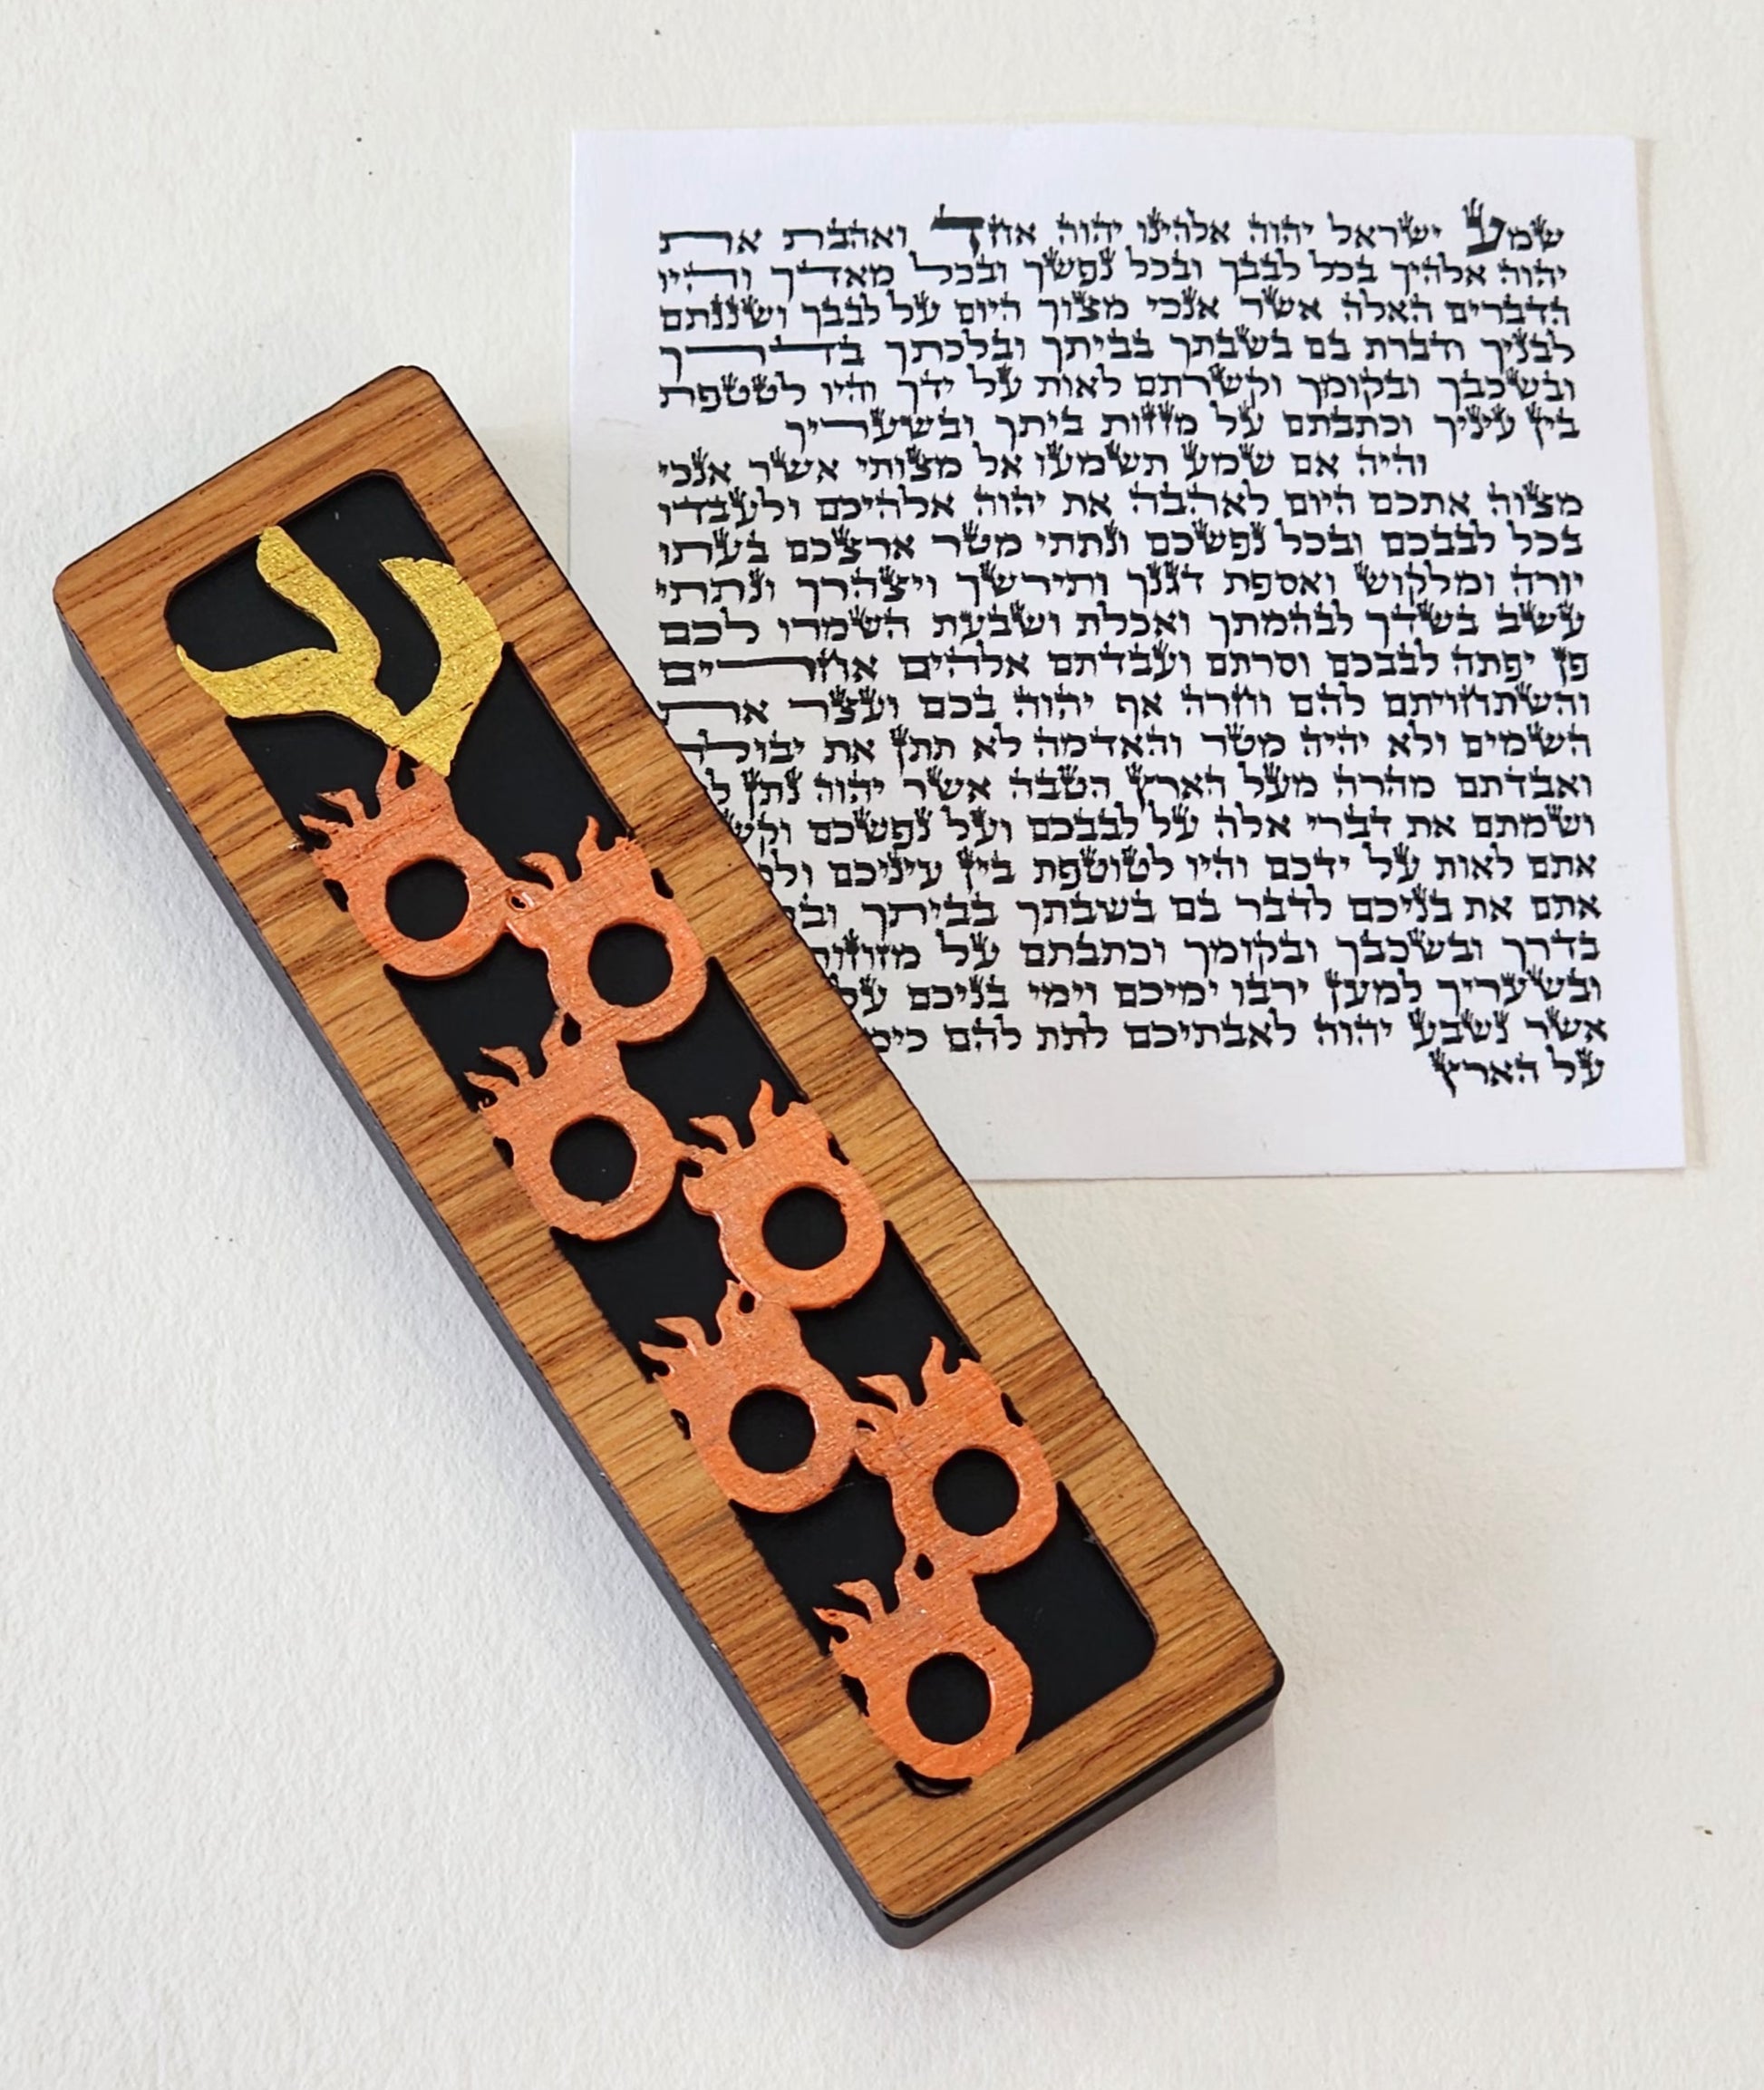 ש
שמע ישראל יהוה אלהינו יהוה אחד ואהבת את
יהוה אלהיך בכל לבבך ובכל נפשך ובכל מאדך והיו
הדברים האלה אשר אנכי מצוך היום על לבבך ושננתם
לבניך ודברת בם בשבתך בביתך ובלכתך בדרך
ובשכבך ובקומך וקשרתם לאות על ידך והיו לטטפת
בין עיניך וכתבתם על מזזות ביתך ובשעריך
והיה אם שמע תשמעו אל מצותי אשר אנכי
מצוה אתכם היום לאהבה את יהוה אלהיכם ולעבדו
בכל לבבכם ובכל נפשכם ונתתי מטר ארצכם בעתו
יורה ומלקוש ואספת דגנך ותירשך ויצהרך ונתתי
עשב בשדך לבהמתך ואכלת ושבעת השמרו לכם
פן יפתה לבבכם וסרתם ועבדתם אלהים אחרים
והשתחויתם להם וחרה אף יהוה בכם ועצר את
השמים ולא יהיה מטר והאדמה לא תתן את
ואבדתם מהרה מעל הארץ הטבה אשר יהוה נתן
ושמתם את דברי אלה על לבבכם ועל נפשכם
אתם לאות על ידכם והיו לטוטפת בין עיניכם
אתם את בניכם לדבר בם בשבתך בביתך
בדרך ובשכבך ובקומך וכתבתם על
ובשעריך למען ירבו ימיכם וימי בניכם
אשר נשבע יהוה לאבתיכם לתת להם
על הארץ